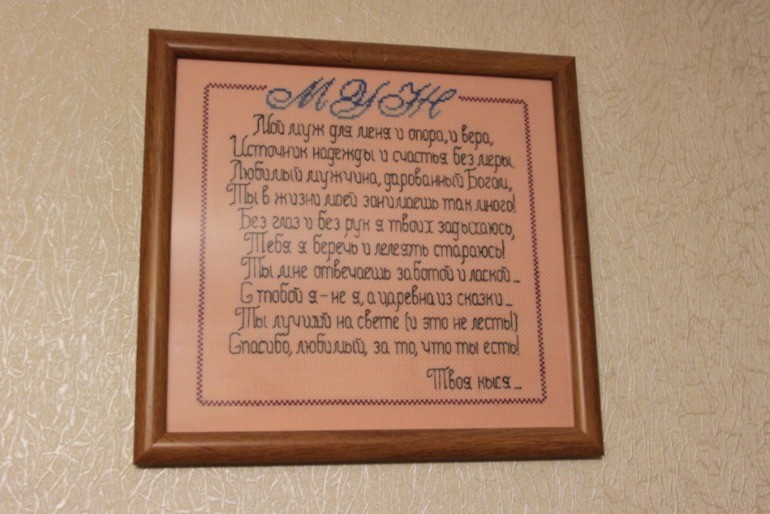 МУЖ
Мой муж для меня и опора, и вера,
Источник надежды и счастья без меры.
Любимый мужчина, дарованный Богом,
Ты в жизни моей занимаешь так много!
Без глаз и без рук я твоих задыхаюсь,
Тебя я беречь и лелеять стараюсь!
Ты мне отвечаешь заботой и лаской...
С тобой я - не я, а царевна из сказки...
Ты лучший на свете (и это не лесть!)
Спасибо, любимый, за то, что ты есть!
Твоя кыся...